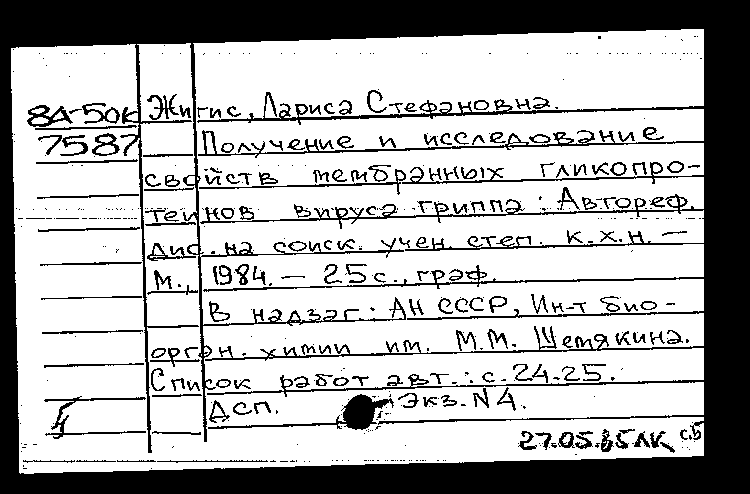 8А-50к Жигис, Лариса Стефановна.
7587 Получение и исследование
свойств мембранных гликопро-
теинов вируса гриппа : Автореф.
дис. на соиск. учен. степ. к.х.н. —
М., 1984. — 25 с., граф.
В надзаг.: АН СССР, Ин-т био-
орган. химии им. М.М. Шемякина.
Список работ авт.: с. 24-25.
ДСП. Экз. N 4.
27.05.85 ЛК с.Б